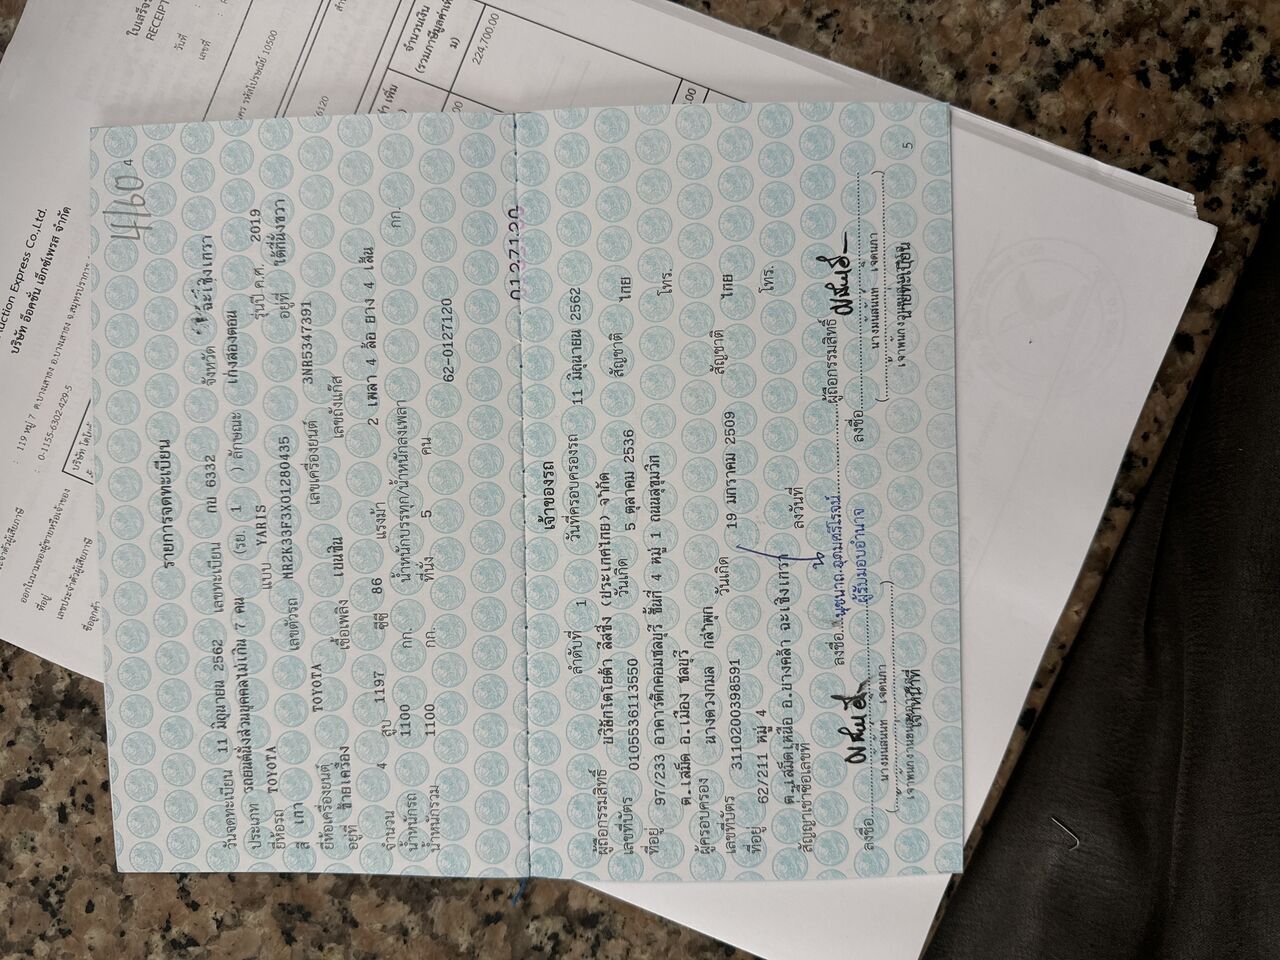 4160
4
รายการจดทะเบียน
วันจดทะเบียน 11 มิถุนายน 2562 เลขทะเบียน กบ 6332 จังหวัด ฉะเชิงเทรา
ประเภท รถยนต์นั่งส่วนบุคคลไม่เกิน 7 คน (รย. 1 ) ลักษณะ เก๋งสองตอน
ยี่ห้อรถ TOYOTA แบบ YARIS รุ่นปี ค.ศ. 2019
สี เทา เลขตัวรถ MR2K33F3X01280435 อยู่ที่ ใต้ที่นั่งขวา
ยี่ห้อเครื่องยนต์ TOYOTA เลขเครื่องยนต์ 3NR5347391
อยู่ที่ ซ้ายเครื่อง เชื้อเพลิง เบนซิน เลขถังแก๊ส
จำนวน 4 สูบ 1197 ซีซี 86 แรงม้า 2 เพลา 4 ล้อ ยาง 4 เส้น
น้ำหนักรถ 1100 กก. น้ำหนักบรรทุก/น้ำหนักลงเพลา กก.
น้ำหนักรวม 1100 กก. ที่นั่ง 5 คน
62-0127120
เจ้าของรถ
ลำดับที่ 1 วันที่ครอบครองรถ 11 มิถุนายน 2562
ผู้ถือกรรมสิทธิ์ บริษัทโตโยต้า ลีสซิ่ง (ประเทศไทย) จำกัด
เลขที่บัตร 0105536113550 วันเกิด 5 ตุลาคม 2536 สัญชาติ ไทย
ที่อยู่ 97/233 อาคารตึกคอมชลบุรี ชั้นที่ 4 หมู่ 1 ถนนสุขุมวิท โทร.
ต.เสม็ด อ.เมือง ชลบุรี
ผู้ครอบครอง
เลขที่บัตร 3110200398591 วันเกิด 19 มกราคม 2509 สัญชาติ ไทย
ที่อยู่ 62/211 หมู่ 4 โทร.
ต.เสม็ดเหนือ อ.บางคล้า ฉะเชิงเทรา
สัญญาเช่าซื้อเลขที่ ลงวันที่
ลงชื่อ ผู้ถือกรรมสิทธิ์
ผู้รับมอบอำนาจ
ลงชื่อ ลงชื่อ
เจ้าหน้าที่ นายทะเบียน
5
บริษัท อ๊อคชั่น เอ็กซ์เพรส จำกัด
uction Express Co.,Ltd.
: 119 หมู่ 7 ต.บางเสาธง อ.บางเสาธง จ.สมุทรปราการ
: 0-1155-6302-429-5
ออกในนามของผู้ขายหรือเจ้าของ
ที่อยู่
เลขประจำตัวผู้เสียภาษี
RECEIPT
วันที่
เลขที่
รหัสไปรษณีย์ 10500
จำนวนเงิน
224,700.00